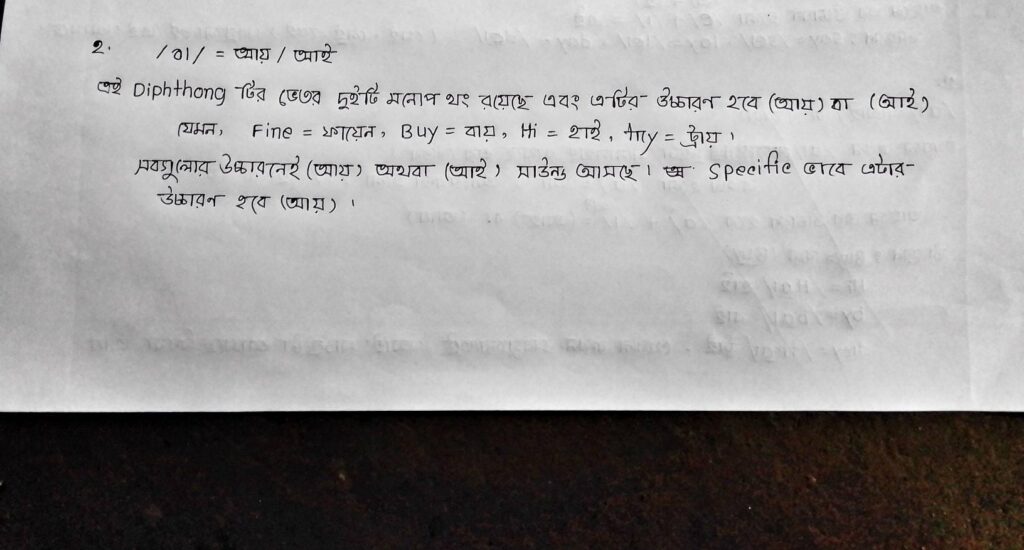 ২. /aI/ = আয় / আই
এই Diphthong টির ভেতর দুইটি মনোপ থং রয়েছে এবং এটির উচ্চারণ হবে (আয়) বা (আই)
যেমন, Fine = ফায়েন, Buy = বায়, Hi = হাই, try = ট্রায়।
সবগুলোর উচ্চারনেই (আয়) অথবা (আই) সাউন্ড আসছে। Specific ভাবে এটার
উচ্চারণ হবে (আয়)।